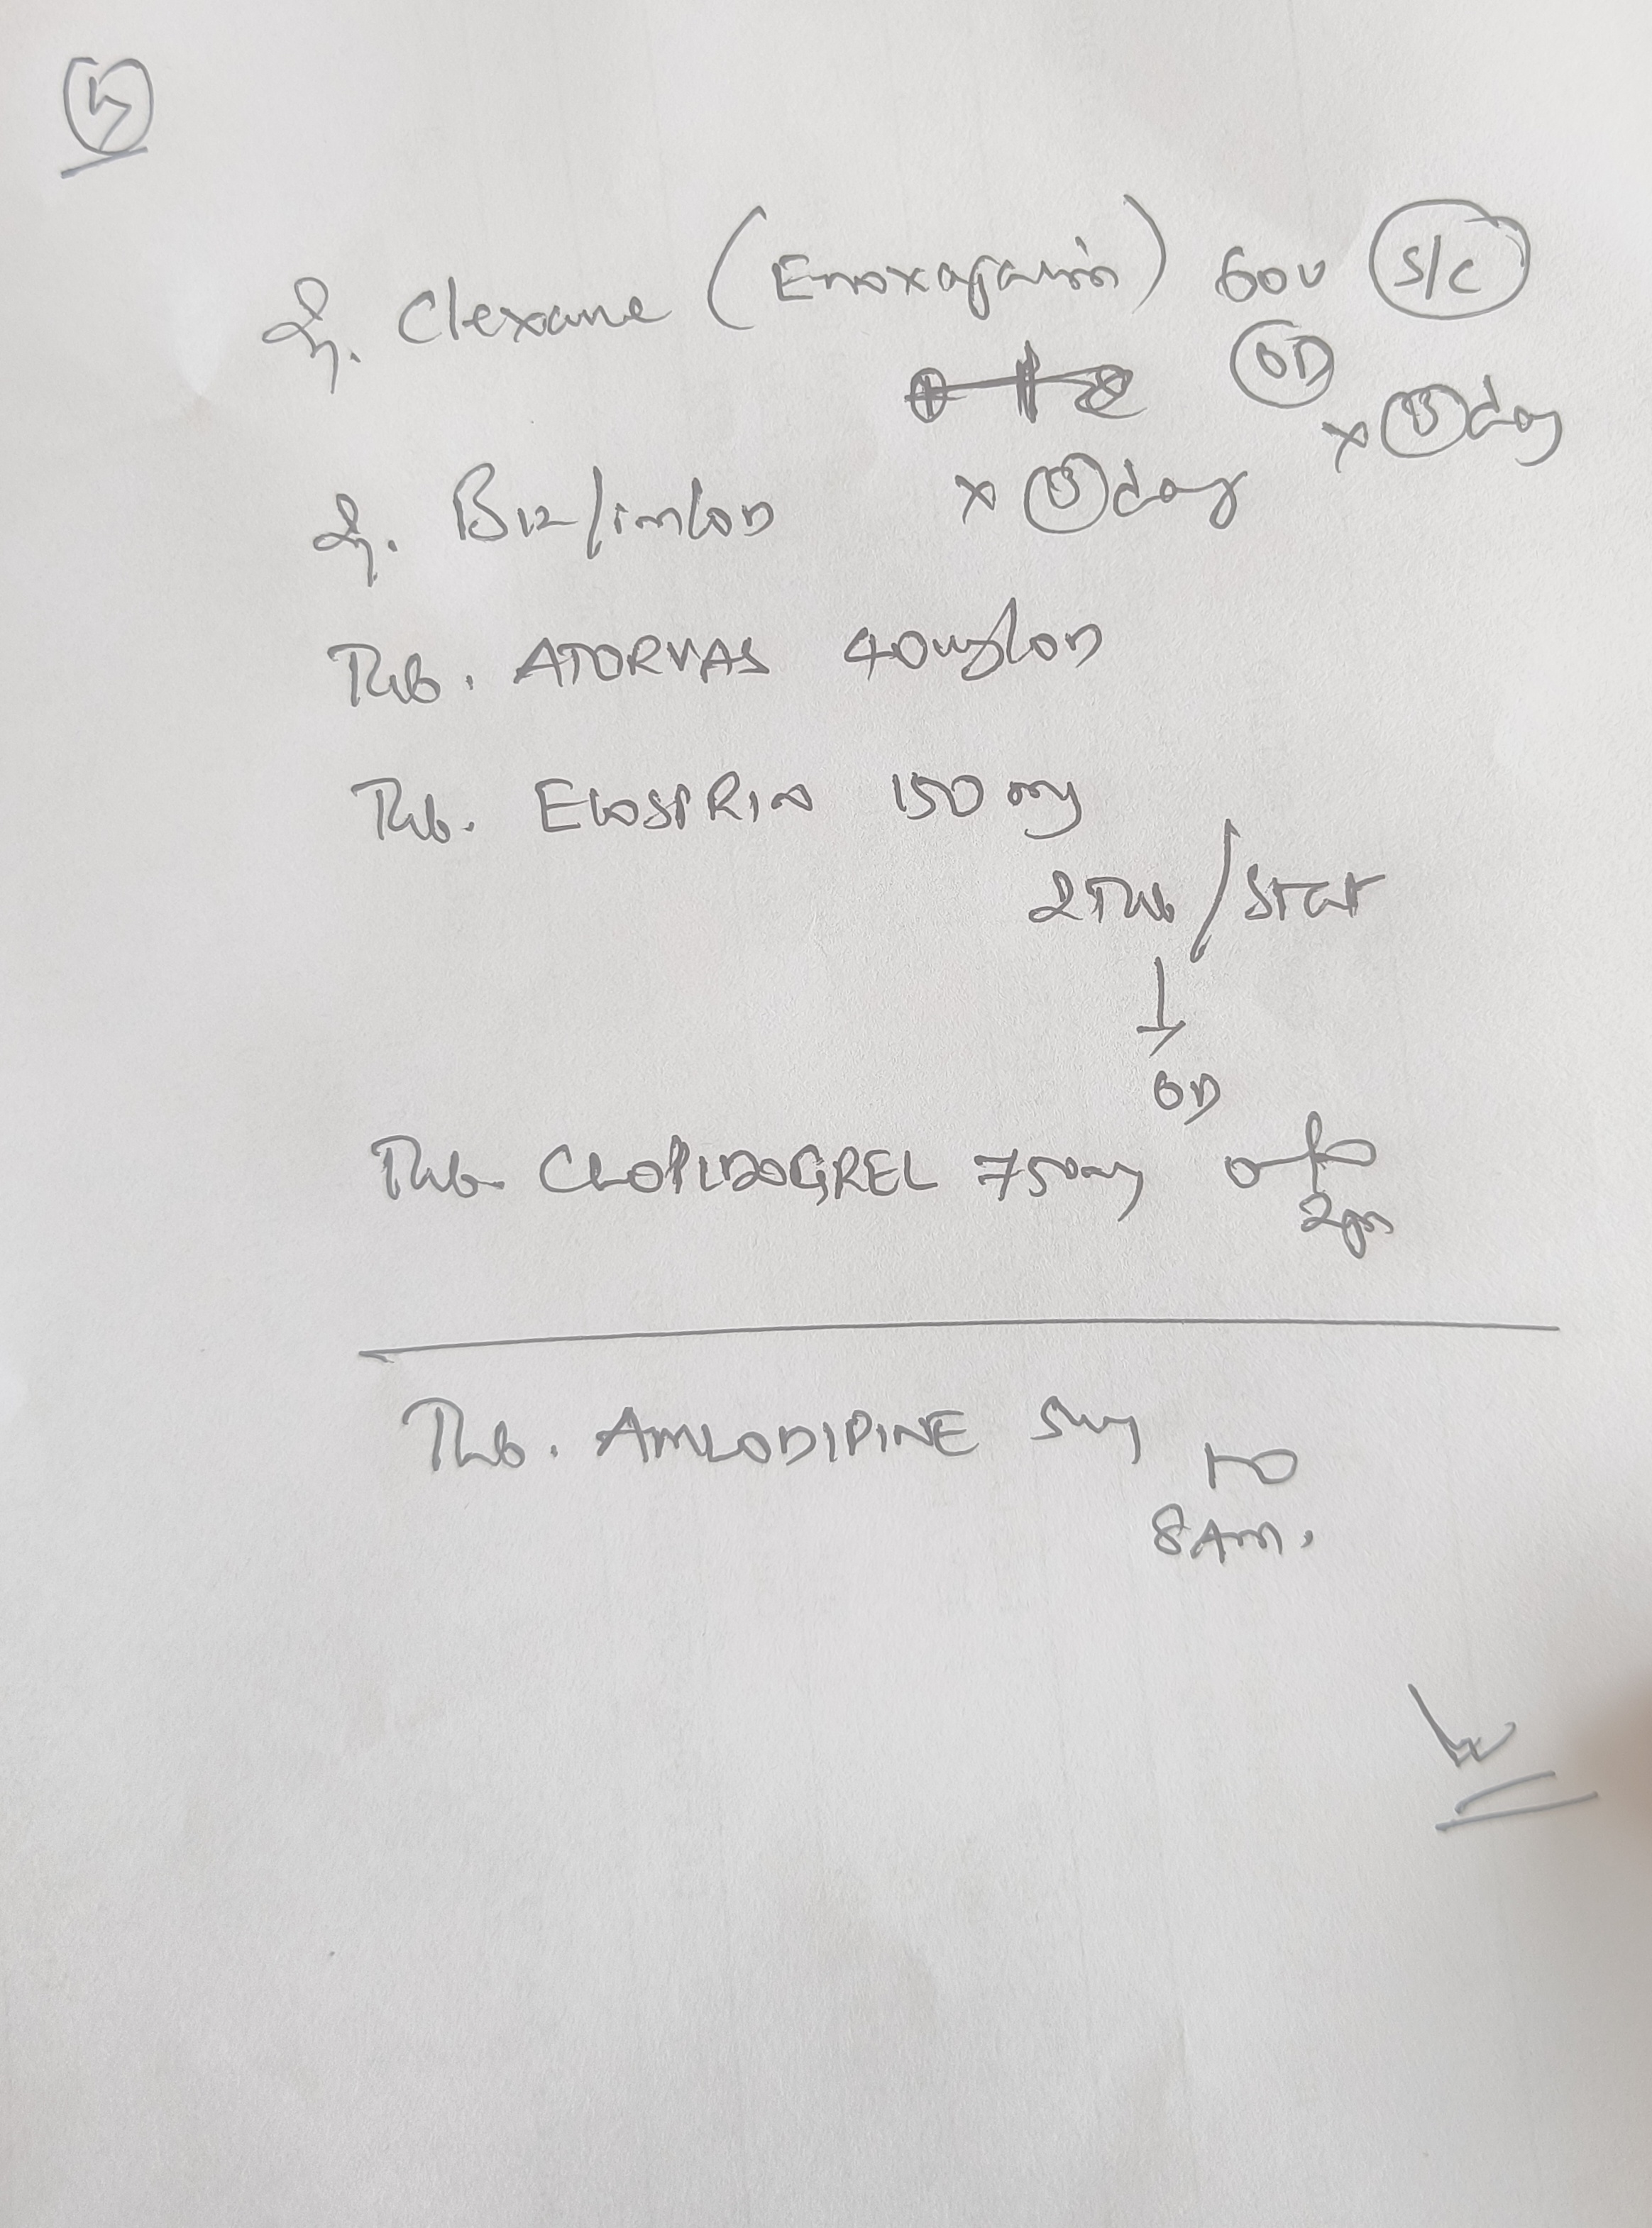 5
Inj. Clexane (Enoxaparin) 60U S/C
OD
x 5 day
Inj. B12/im/OD x 5 day
Tab. ATORVAS 40mg/OD
Tab. ECOSPRIN 150 mg
2 Tab/Stat
↓
OD
Tab. CLOPIDOGREL 75mg
2pm
Tab. AMLODIPINE 5mg
8 Am.